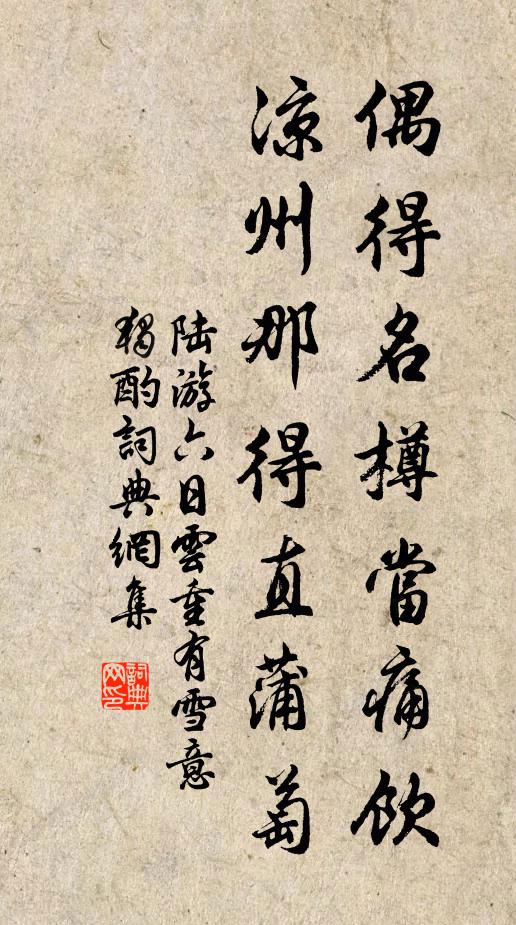 偶得名樽當痛飲
涼州那得直蒲萄
陸游六日雲重有雪意
獨酌詞典網集
詞典
网印